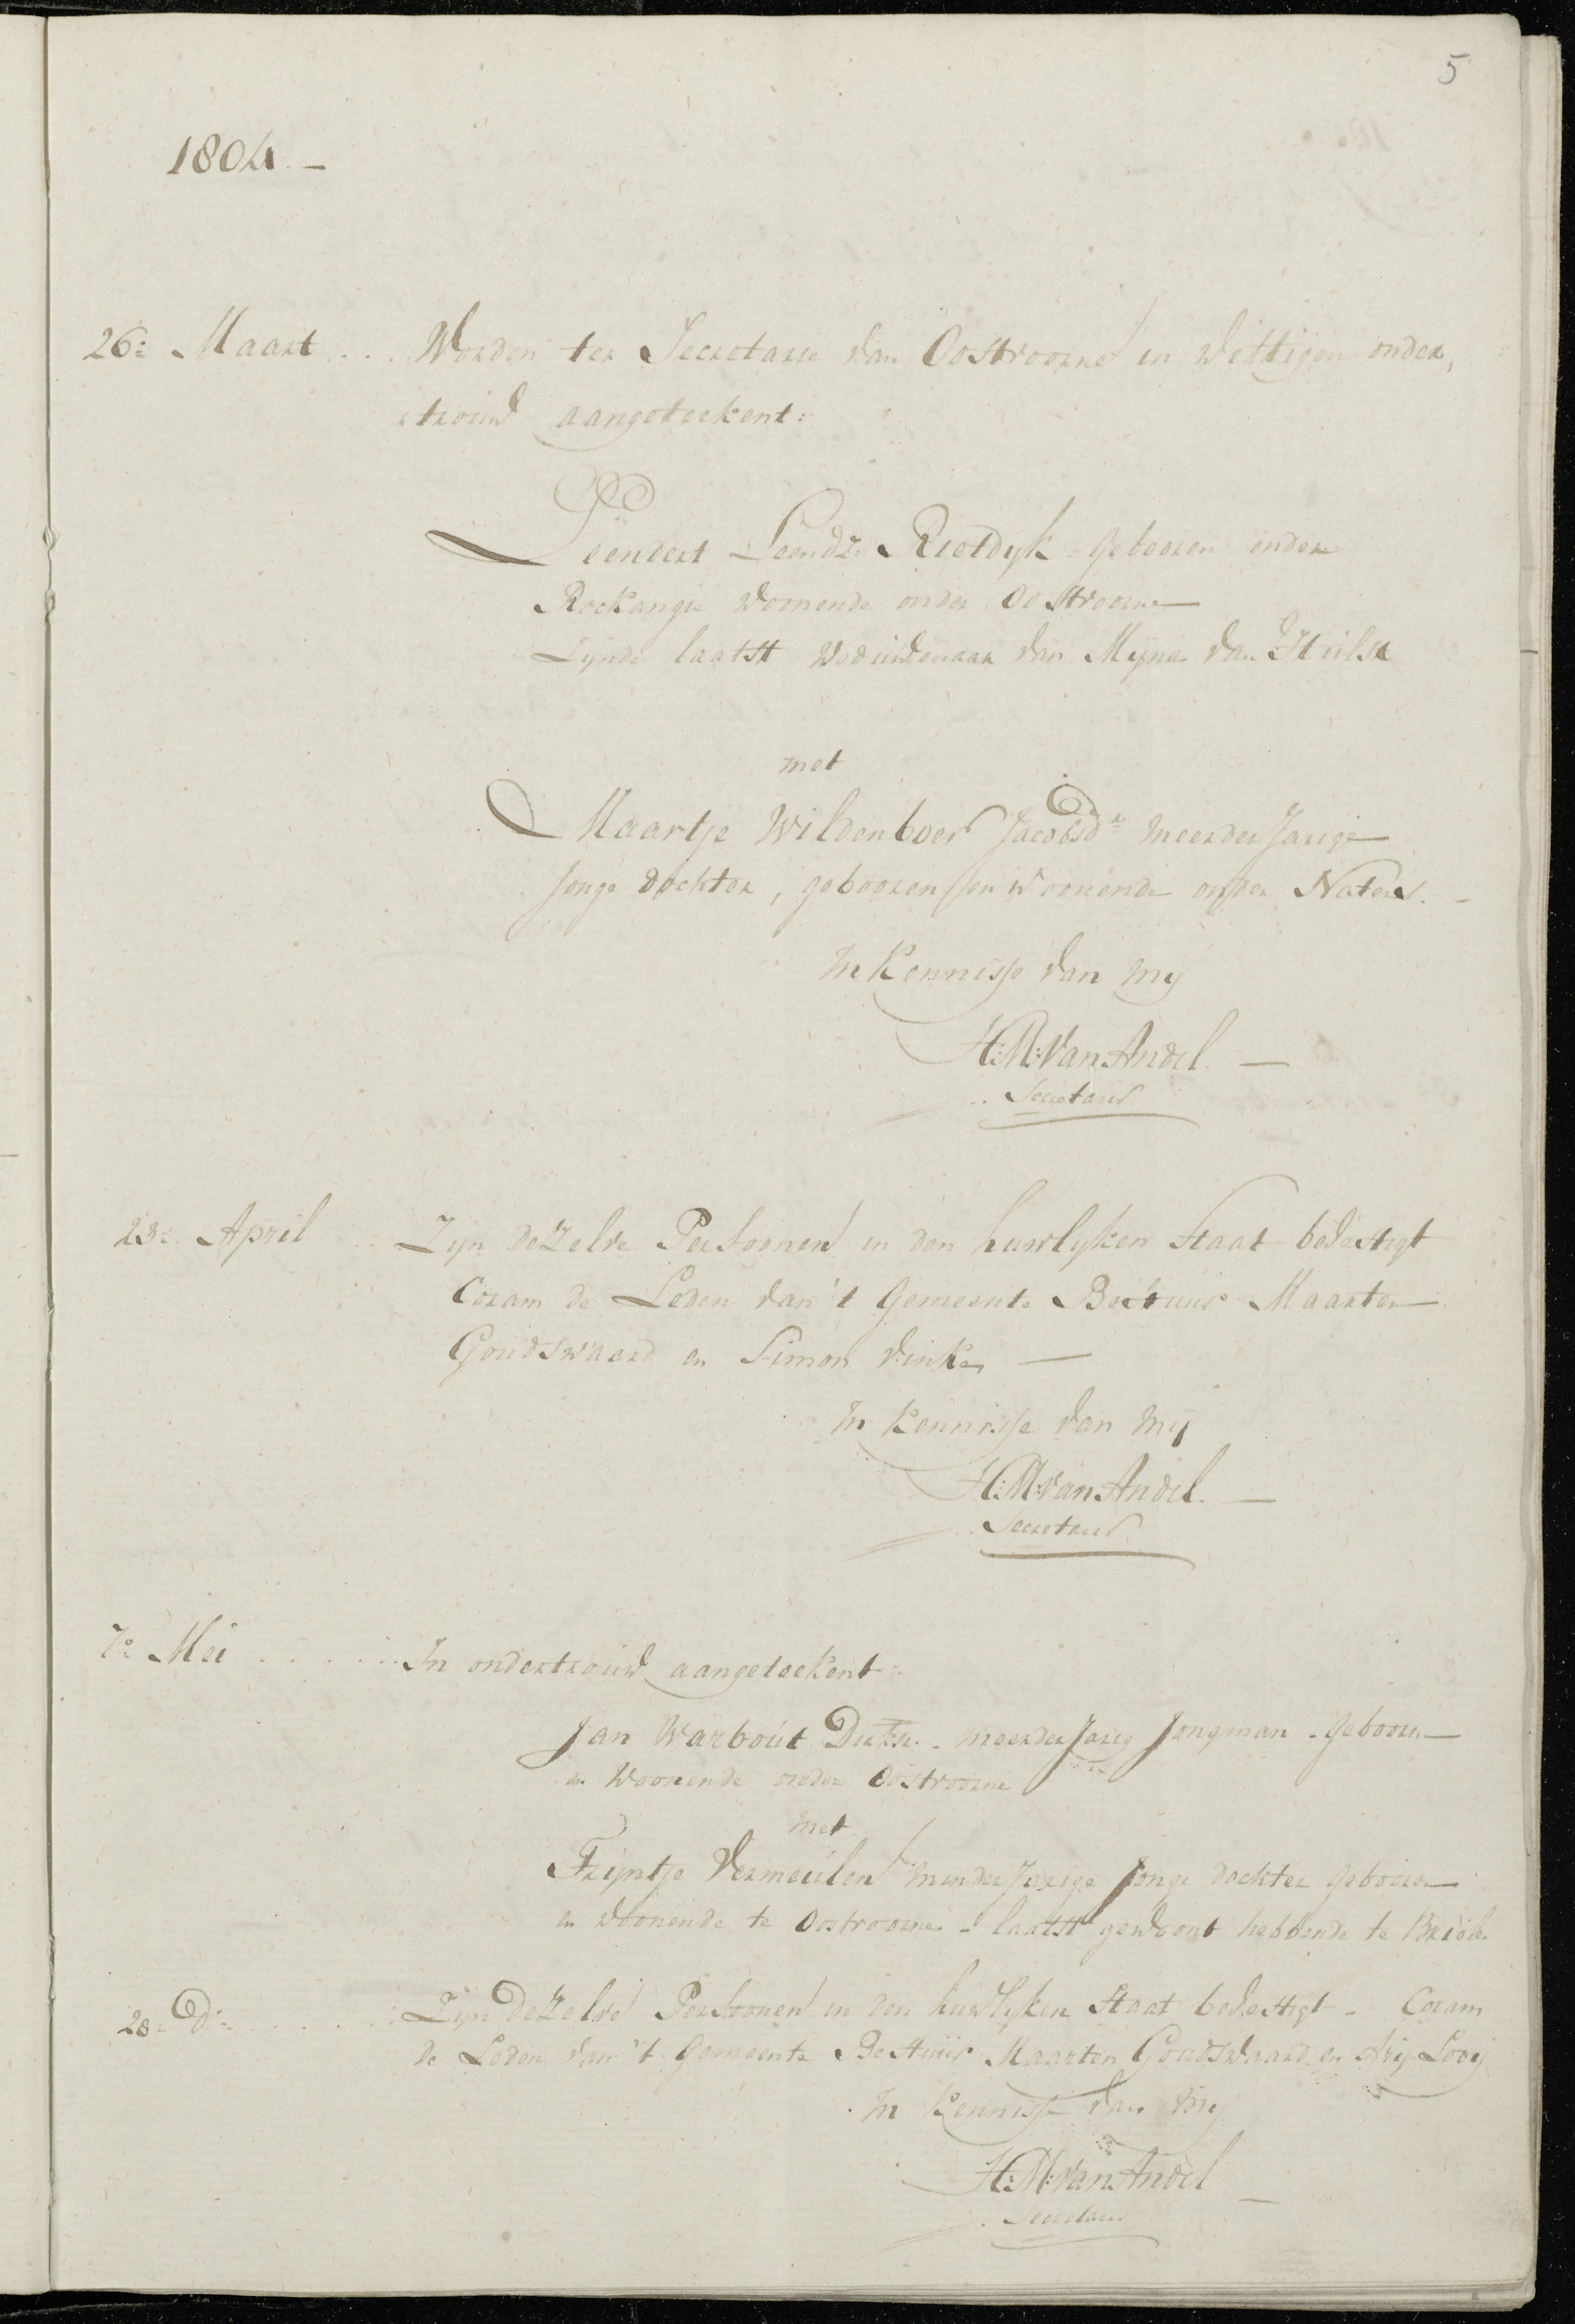 5
1804. —
26: Maart . . . Worden ter Secretarie van Oostvoorne in wettigen onder,
trouw aangeteekent:
Leendert Leendz: Rietdyk - gebooren onder
Rockangie woonende onder Oostvoorne
Zynde laatst weduwenaar van Myne van Hulst
met
Maartje Wildenboer Jacobsdr meerder Jarige
Jonge dochter, gebooren en woonende onder Naters. -
In Kennisse van my
H:M: van Andel. —
Secretaris
23: April . . Zyn dezelve Persoonen in den huwlyken Staat bevestigt
Coram de Leden van 't Gemeente Bestuur Maarten
Goudswaard en Simon Vinke —
In Kennisse van my
H:M: van Andel. —
Secretaris
7: Mei . . . . . . In ondertrouw aangeteekent:
Jan Warbout Dirksz. - meerder Jarig Jongman - gebooren
en Woonende onder Oostvoorne
met
Trijntje Vermeulen minder Jarige Jonge dochter gebooren
en woonende te Oostvoorne - laatst gewoont hebbende te Briële
28: do: . . . . . . Zyn Dezelve Persoonen in den huwlyken Staat bevestigt - Coram
de Leden van 't Gemeente Bestuur Maarten Goudswaard en Arij Looij
In Kennisse van my
H:M: van Andel —
Secretaris